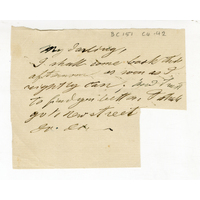 BC 151 CG 142
My darling,
I shall come back this
afternoon as soon as I
rightly can. And I wish
to find you better. I shall
go to New Street